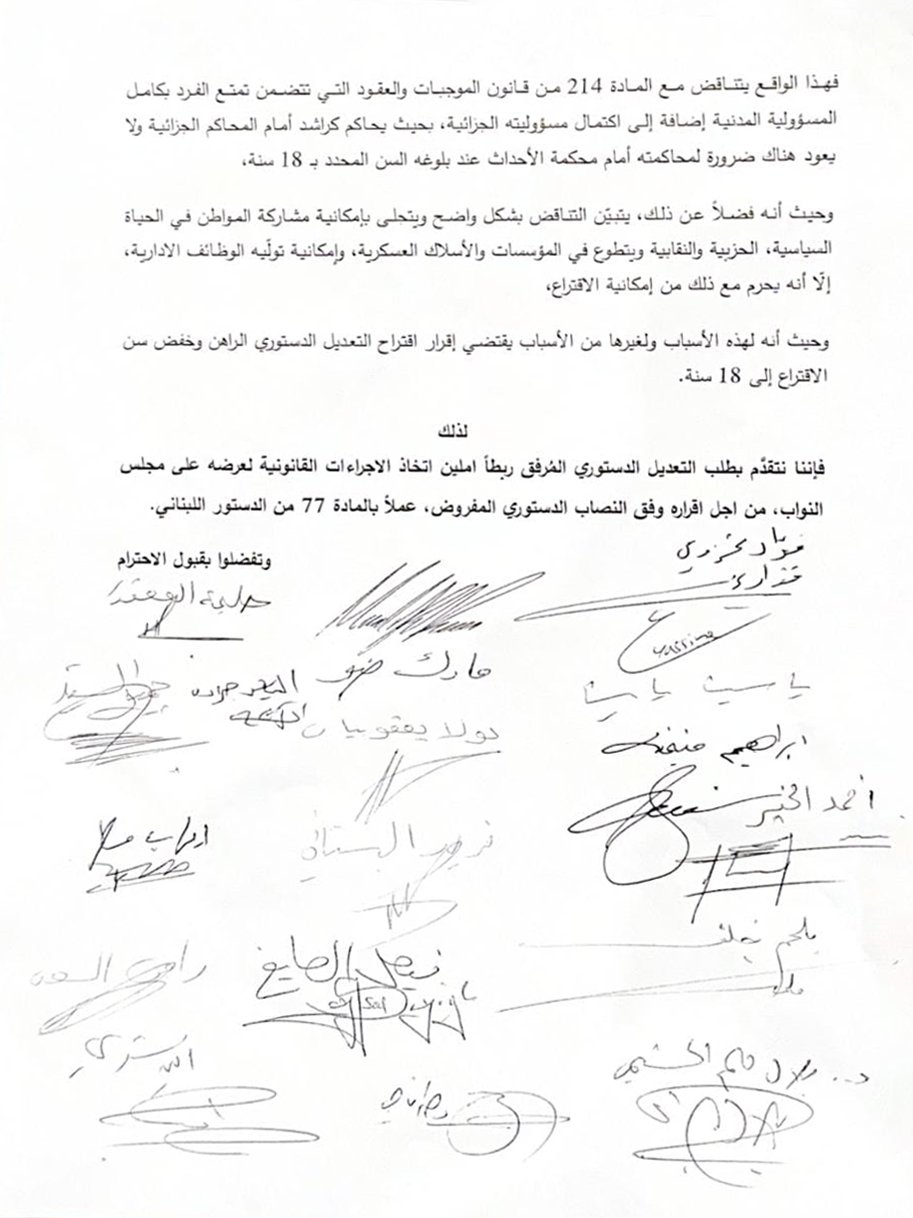 فهذا الواقع يتناقض مع المادة 214 من قانون الموجبات والعقود التي تتضمن تمتع الفرد بكامل
المسؤولية المدنية إضافة إلى اكتمال مسؤوليته الجزائية، بحيث يحاكم كراشد أمام المحاكم الجزائية ولا
يعود هناك ضرورة لمحاكمته أمام محكمة الأحداث عند بلوغه السن المحدد بـ 18 سنة،
وحيث أنه فضلاً عن ذلك، يتبيّن التناقض بشكل واضح ويتجلى بإمكانية مشاركة المواطن في الحياة
السياسية، الحزبية والنقابية ويتطوع في المؤسسات والأسلاك العسكرية، وإمكانية تولّيه الوظائف الادارية،
إلّا أنه يحرم مع ذلك من إمكانية الاقتراع،
وحيث أنه لهذه الأسباب ولغيرها من الأسباب يقتضي إقرار اقتراح التعديل الدستوري الراهن وخفض سن
الاقتراع إلى 18 سنة.
لذلك
فإننا نتقدَّم بطلب التعديل الدستوري المُرفق ربطاً املين اتخاذ الاجراءات القانونية لعرضه على مجلس
النواب، من اجل اقراره وفق النصاب الدستوري المفروض، عملاً بالمادة 77 من الدستور اللبناني.
وتفضلوا بقبول الاحترام
فؤاد مخزومي
حليمة القعقور
Yassine
مارك ضو
ياسين ياسين
بولا يعقوبيان
ابراهيم منيمنة
احمد الخير
فريد البستاني
ملحم خلف
فيصل الصايغ
د. بلال